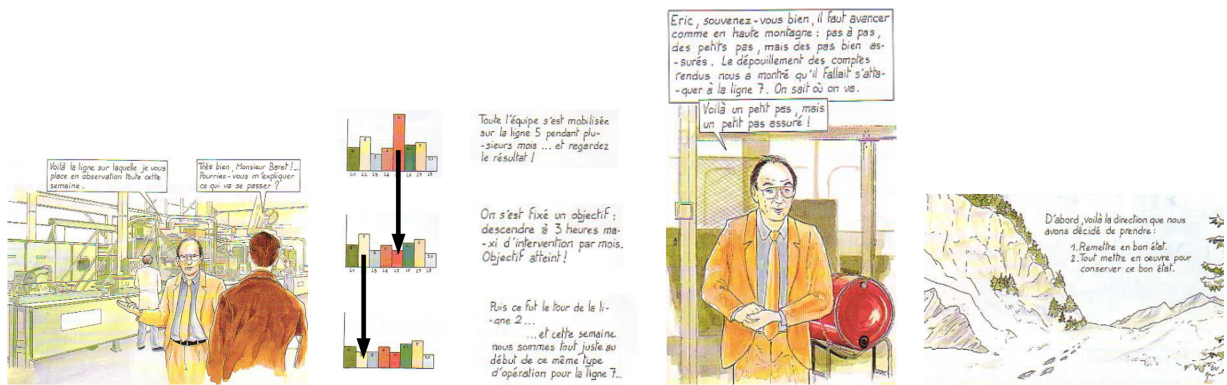 Voilà la ligne sur laquelle je vous
place en observation toute cette
semaine.
Très bien, Monsieur Barat !...
Pourriez-vous m'expliquer
ce qui va se passer ?
Toute l'équipe s'est mobilisée
sur la ligne 5 pendant plu-
-sieurs mois ... et regardez
le résultat !
On s'est fixé un objectif :
descendre à 3 heures ma-
-xi d'intervention par mois.
Objectif atteint !
Puis ce fut le tour de la li-
-gne 2 ...
... et cette semaine
nous sommes tout juste au
début de ce même type
d'opération pour la ligne 7...
Eric, souvenez-vous bien, il faut avancer
comme en haute montagne : pas à pas,
des petits pas, mais des pas bien as-
-surés. Le dépouillement des comptes
rendus nous a montré qu'il fallait s'atta-
-quer à la ligne 7. On sait où on va.
Voilà un petit pas, mais
un petit pas assuré !
D'abord, voilà la direction que nous
avons décidé de prendre :
1. Remettre en bon état.
2. Tout mettre en oeuvre pour
conserver ce bon état.